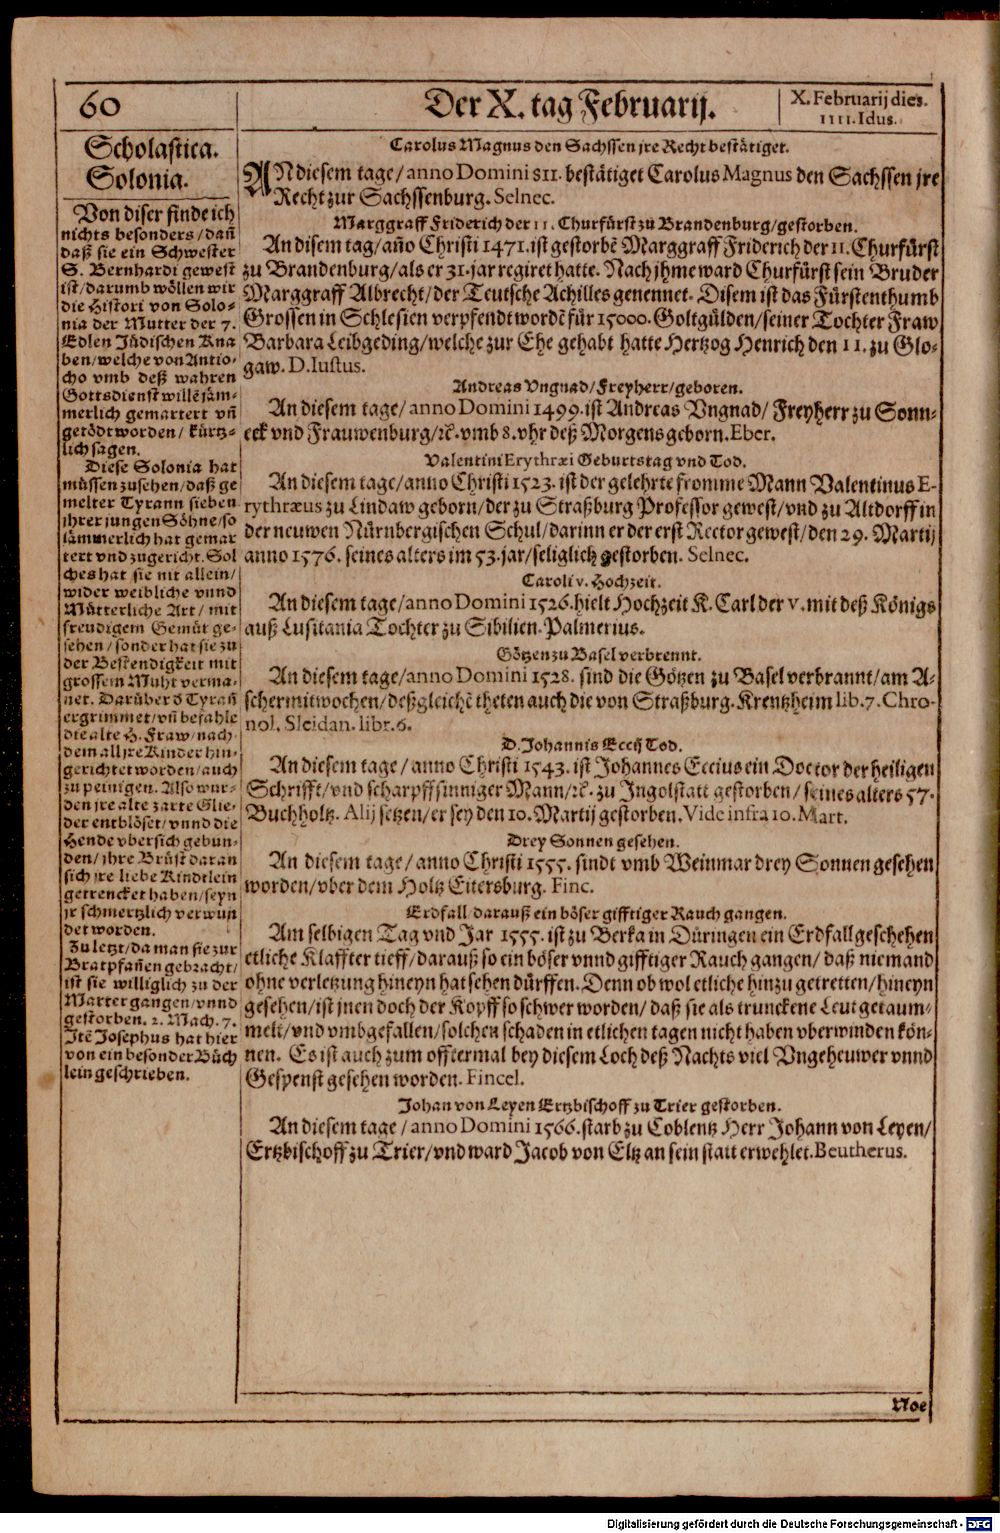 60
Der X. tag Februarij.
X. Februarij dies.
IIII. Idus.
Scholastica.
Solonia.
Von diser finde ich
nichts besonders / dañ
daß sie ein Schwester
S. Bernhardi gewest
ist / darumb wöllen wir
die Histori von Solo-
nia der Mutter der 7.
Edlen Jüdischen Kna
ben / welche von Antio-
cho vmb deß wahren
Gottsdienst willē jäm-
merlich gemartert vñ
getödt worden / kürtz-
lich sagen.
Diese Solonia hat
müssen zusehen / daß ge
melter Tyrann sieben
jhrer jungen Söhne / so
jämmerlich hat gemar
tert vnd zugericht. Sol
ches hat sie nit allein /
wider weibliche vnnd
Mütterliche Art / mit
freudigem Gemüt ge-
sehen / sonder hat sie zu
der Bestendigkeit mit
grossem Muht verma-
net. Darüber d Tyrañ
ergrimmet / vñ befahle
die alte H. Fraw / nach
dem all jre Kinder hin-
gerichtet worden / auch
zu peinigen. Also wur-
den jre alte zarte Glie-
der entblöset / vnnd die
Hende vbersich gebun-
den / jhre Brüst daran
sich jre liebe Kindtlein
getrencket haben / seyn
jr schmertzlich verwun
det worden.
Zu letzt / da man sie zur
Bratpfañen gebracht /
ist sie williglich zu der
Marter gangen / vnnd
gestorben. 2. Mach. 7.
Itē Josephus hat hier
von ein besonder Büch
lein geschrieben.
Carolus Magnus den Sachssen jre Recht bestätiget.
ANdiesem tage / anno Domini 811. bestätiget Carolus Magnus den Sachssen jre
Recht zur Sachssenburg. Selnec.
Marggraff Friderich der II. Churfürst zu Brandenburg / gestorben.
An disem tag / año Christi 1471. ist gestorbē Marggraff Friderich der II. Churfürst
zu Brandenburg / als er 31. jar regiret hatte. Nach jhme ward Churfürst sein Bruder
Marggraff Albrecht / der Teutsche Achilles genennet. Disem ist das Fürstenthumb
Grossen in Schlesien verpfendt wordē für 15000. Goltgülden / seiner Tochter Fraw
Barbara Leibgeding / welche zur Ehe gehabt hatte Hertzog Henrich den 11. zu Glo-
gaw. D. Iustus.
Andreas Vngnad / Freyherr / geboren.
An diesem tage / anno Domini 1499. ist Andreas Vngnad / Freyherr zu Sonn-
eck vnd Frauwenburg / ꝛc. vmb 8. vhr deß Morgens geborn. Eber.
Valentini Erythræi Geburtstag vnd Tod.
An diesem tage / anno Christi 1523. ist der gelehrte fromme Mann Valentinus E-
rythræus zu Lindaw geborn / der zu Straßburg Professor gewest / vnd zu Altdorff in
der neuwen Nürnbergischen Schul / darinn er der erst Rector gewest / den 29. Martij
anno 1576. seines alters im 53. jar / seliglich gestorben. Selnec.
Caroli v. Hochzeit.
An diesem tage / anno Domini 1526. hielt Hochzeit K. Carl der V. mit deß Königs
auß Lusitania Tochter zu Sibilien. Palmerius.
Götzen zu Basel verbrennt.
An diesem tage / anno Domini 1528. sind die Götzen zu Basel verbrannt / am A-
schermitwochen / deßgleichē theten auch die von Straßburg. Krentzheim lib. 7. Chro-
nol. Sleidan. libr. 6.
D. Johannis Eccij Tod.
An diesem tage / anno Christi 1543. ist Johannes Eccius ein Doctor der heiligen
Schrifft / vnd scharpffsinniger Mann / ꝛc. zu Ingolstatt gestorben / seines alters 57.
Buchholtz. Alij setzen / er sey den 10. Martij gestorben. Vide infra 10. Mart.
Drey Sonnen gesehen.
An diesem tage / anno Christi 1555. sindt vmb Weinmar drey Sonnen gesehen
worden / vber dem Holtz Eitersburg. Finc.
Erdfall / darauß ein böser gifftiger Rauch gangen.
Am selbigen Tag vnd Jar 1555. ist zu Berka in Düringen ein Erdfall geschehen
etliche Klaffter tieff / darauß so ein böser vnnd gifftiger Rauch gangen / daß niemand
ohne verletzung hineyn hat sehen dürffen. Denn ob wol etliche hinzu getretten / hineyn
gesehen / ist jnen doch der Kopff so schwer worden / daß sie als trunckene Leut getaum-
melt / vnd vmbgefallen / solchen schaden in etlichen tagen nicht haben vberwinden kön-
nen. Es ist auch zum offtermal bey diesem Loch deß Nachts viel Vngeheuwer vnnd
Gespenst gesehen worden. Fincel.
Johan von Leyen Ertzbischoff zu Trier gestorben.
An diesem tage / anno Domini 1566. starb zu Coblentz Herr Johann von Leyen /
Ertzbischoff zu Trier / vnd ward Jacob von Eltz an sein statt erwehlet. Beutherus.
Noe
Digitalisierung gefördert durch die Deutsche Forschungsgemeinschaft - DFG